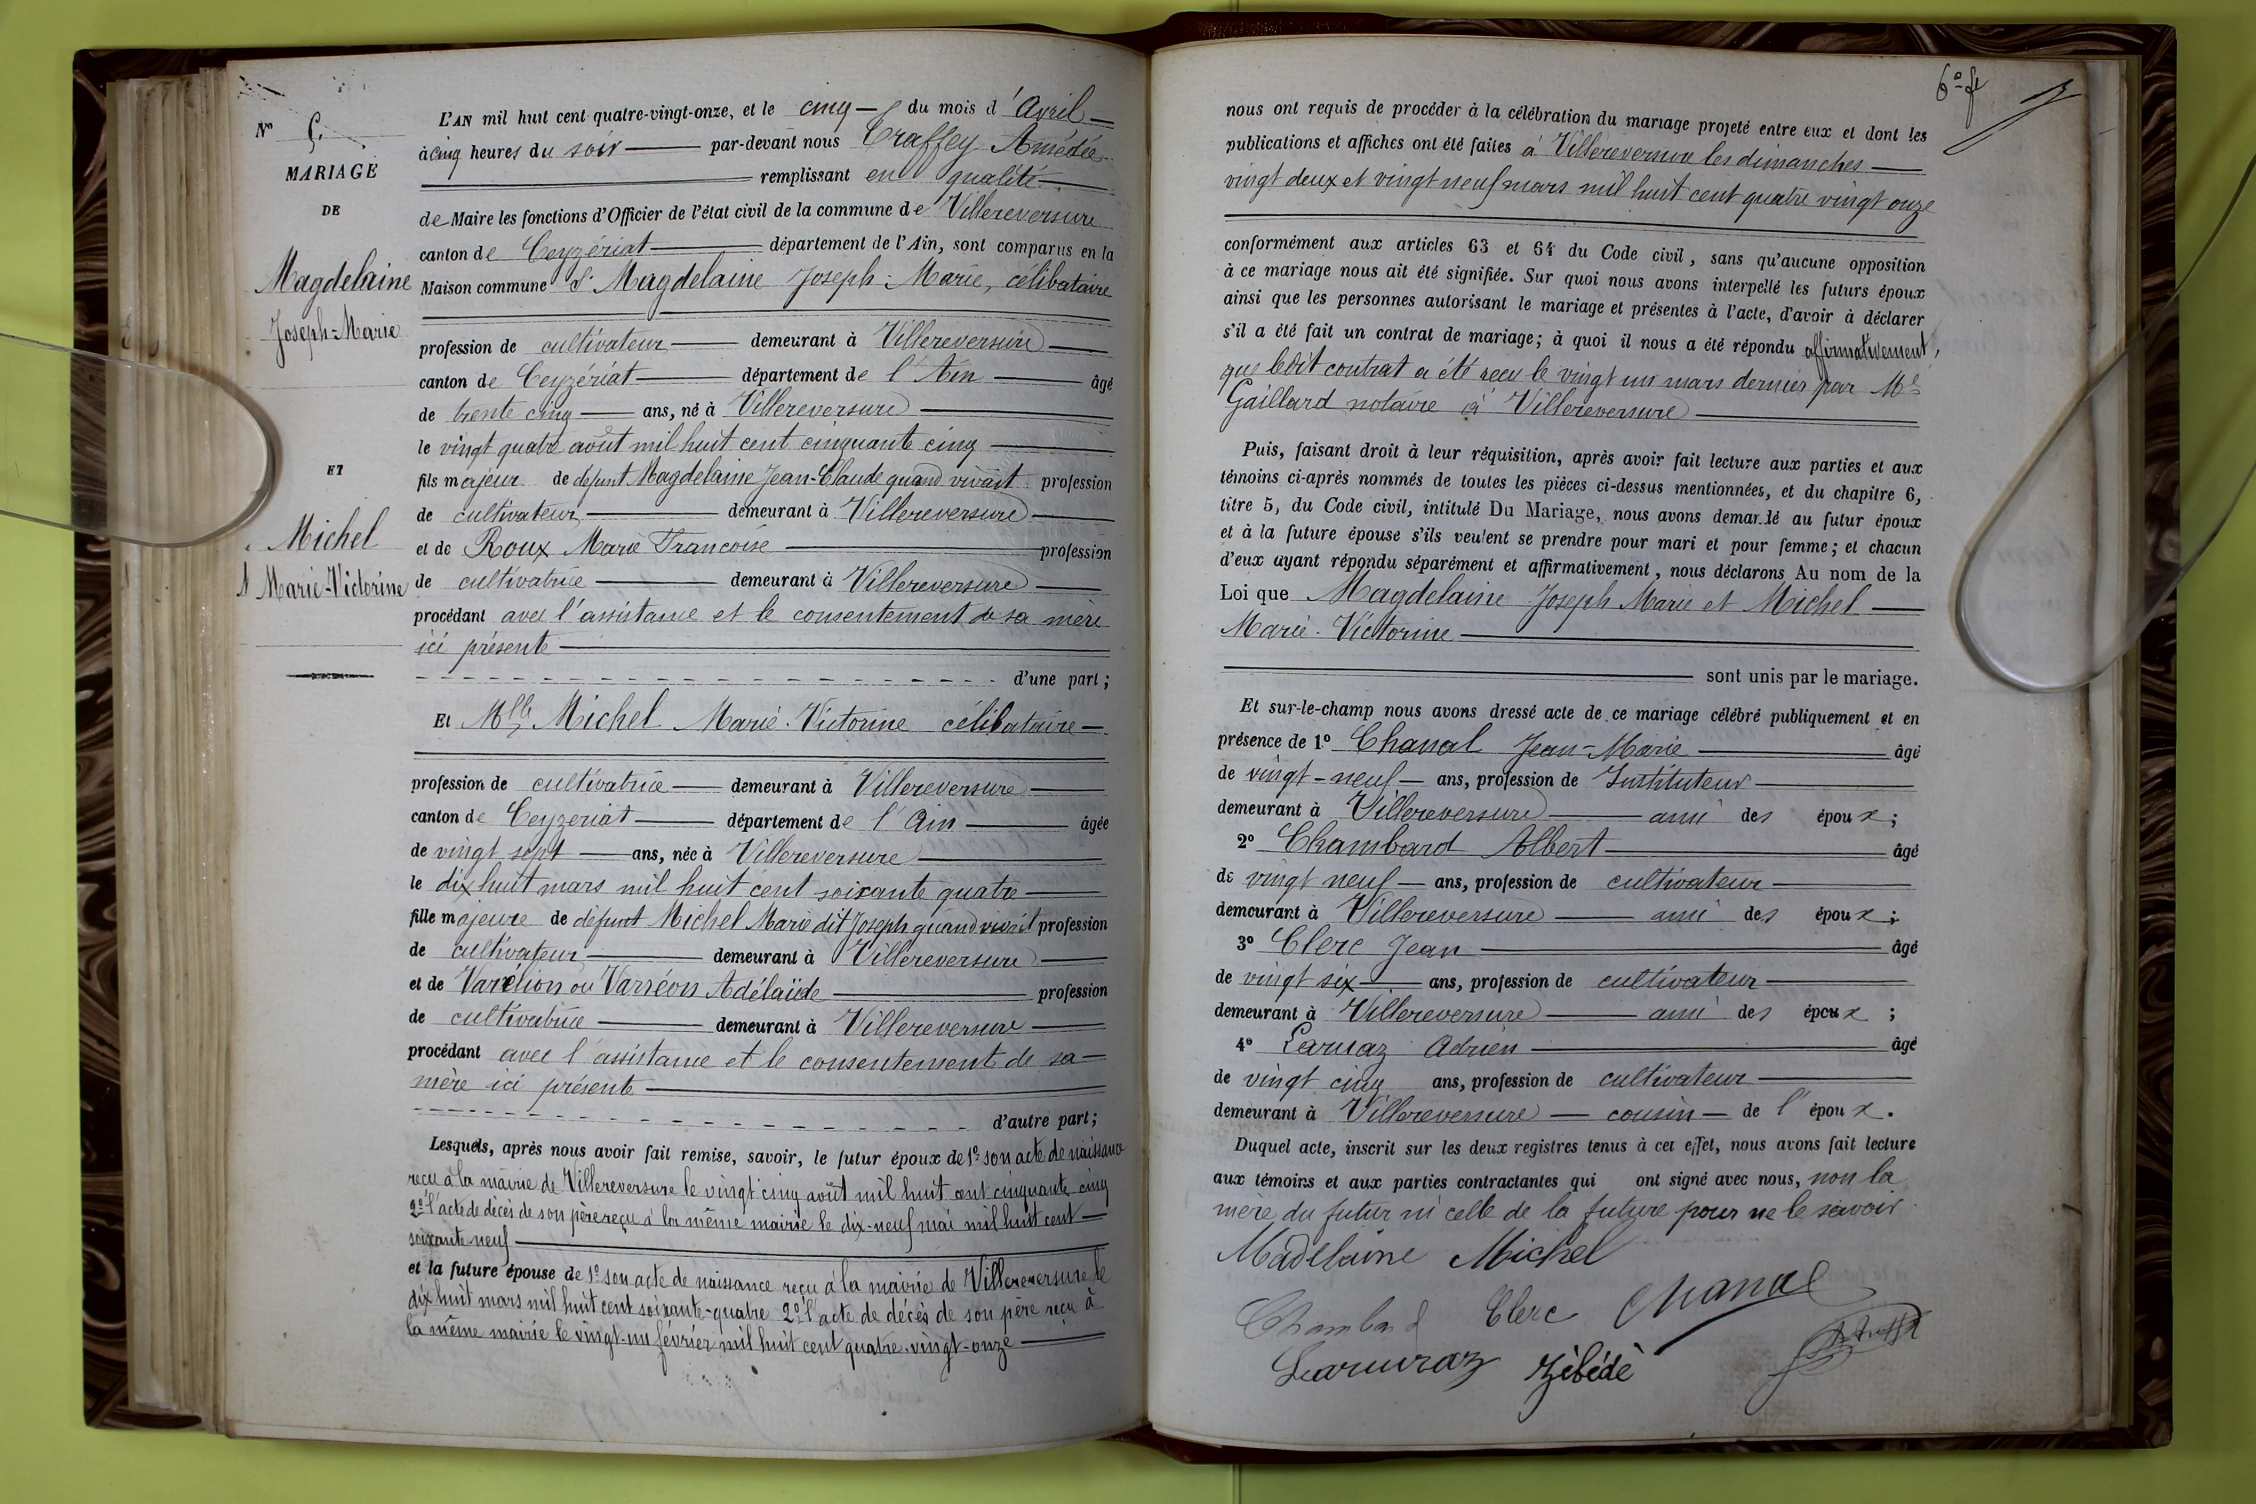 N° 6.
MARIAGE
DE
Magdelaine
Joseph-Marie
ET
Michel
Marie-Victorine
L'AN mil huit cent quatre-vingt-onze, et le cinq du mois d'Avril
à cinq heures du soir par-devant nous Traffey Amédée
remplissant en qualité
de Maire les fonctions d'Officier de l'état civil de la commune de Villereversure
canton de Ceyzériat département de l'Ain, sont comparus en la
Maison commune Sr Magdelaine Joseph-Marie, célibataire
profession de cultivateur demeurant à Villereversure
canton de Ceyzériat département de l'Ain âgé
de trente cinq ans, né à Villereversure
le vingt quatre août mil huit cent cinquante cinq
fils majeur de défunt Magdelaine Jean-Claude quand vivait profession
de cultivateur demeurant à Villereversure
et de Roux Marie Françoise profession
de cultivatrice demeurant à Villereversure
procédant avec l'assistance et le consentement de sa mère
ici présente
d'une part;
Et Mlle Michel Marie-Victorine célibataire
profession de cultivatrice demeurant à Villereversure
canton de Ceyzeriat département de l'Ain âgée
de vingt sept ans, née à Villereversure
le dix huit mars mil huit cent soixante quatre
fille majeure de défunt Michel Marie dit Joseph quand vivait profession
de cultivateur demeurant à Villereversure
et de Varélion ou Varréon Adélaïde profession
de cultivatrice demeurant à Villereversure
procédant avec l'assistance et le consentement de sa
mère ici présente
d'autre part;
Lesquels, après nous avoir fait remise, savoir, le futur époux de 1° son acte de naissance
reçu à la mairie de Villereversure le vingt cinq août mil huit cent cinquante cinq
2° l'acte de décès de son père reçu à la même mairie le dix-neuf mai mil huit cent
soixante neuf
et la future épouse de 1° son acte de naissance reçu à la mairie de Villereversure le
dix huit mars mil huit cent soixante-quatre 2° l'acte de décès de son père reçu à
la même mairie le vingt-un février mil huit cent quatre-vingt-onze
nous ont requis de procéder à la célébration du mariage projeté entre eux et dont les
publications et affiches ont été faites à Villereversure les dimanches
vingt deux et vingt neuf mars mil huit cent quatre vingt onze
conformément aux articles 63 et 64 du Code civil, sans qu'aucune opposition
à ce mariage nous ait été signifiée. Sur quoi nous avons interpellé les futurs époux
ainsi que les personnes autorisant le mariage et présentes à l'acte, d'avoir à déclarer
s'il a été fait un contrat de mariage; à quoi il nous a été répondu affirmativement,
que ledit contrat a été reçu le vingt un mars dernier par Me
Gaillard notaire à Villereversure
Puis, faisant droit à leur réquisition, après avoir fait lecture aux parties et aux
témoins ci-après nommés de toutes les pièces ci-dessus mentionnées, et du chapitre 6,
titre 5, du Code civil, intitulé Du Mariage, nous avons demandé au futur époux
et à la future épouse s'ils veulent se prendre pour mari et pour femme; et chacun
d'eux ayant répondu séparément et affirmativement, nous déclarons Au nom de la
Loi que Magdelaine Joseph Marie et Michel
Marie-Victorine
sont unis par le mariage.
Et sur-le-champ nous avons dressé acte de ce mariage célébré publiquement et en
présence de 1° Chanal Jean-Marie âgé
de vingt-neuf ans, profession de Instituteur
demeurant à Villereversure ami des époux;
2° Chambard Albert âgé
de vingt neuf ans, profession de cultivateur
demeurant à Villereversure ami des époux;
3° Clerc Jean âgé
de vingt six ans, profession de cultivateur
demeurant à Villereversure ami des époux;
4° Laruaz Adrien âgé
de vingt cinq ans, profession de cultivateur
demeurant à Villereversure cousin de l'époux.
Duquel acte, inscrit sur les deux registres tenus à cet effet, nous avons fait lecture
aux témoins et aux parties contractantes qui ont signé avec nous, non la
mère du futur ni celle de la future pour ne le savoir
Madelaine Michel
Chambard Clerc Chanal
Laruraz Zébédé